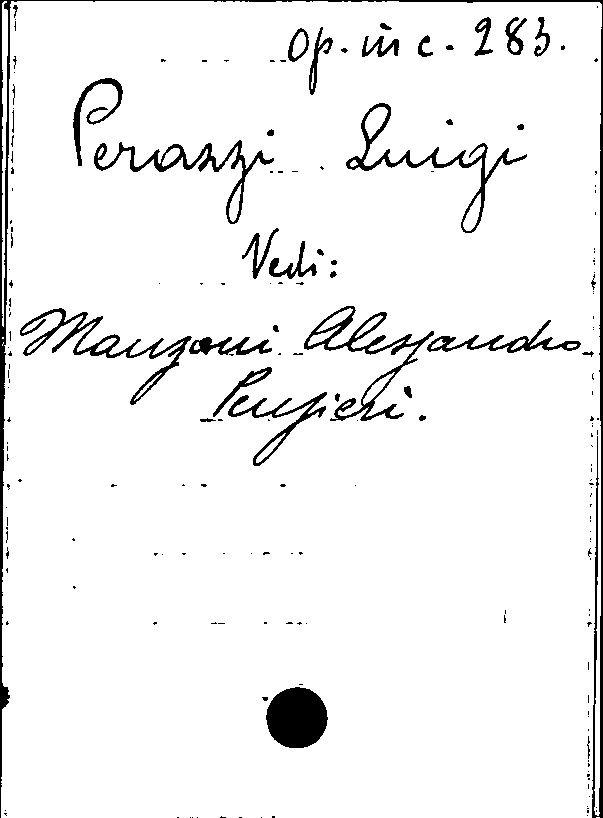 Op. in c. 283.
Perazzi Luigi
Vedi:
Manzoni Alessandro
Pensieri.